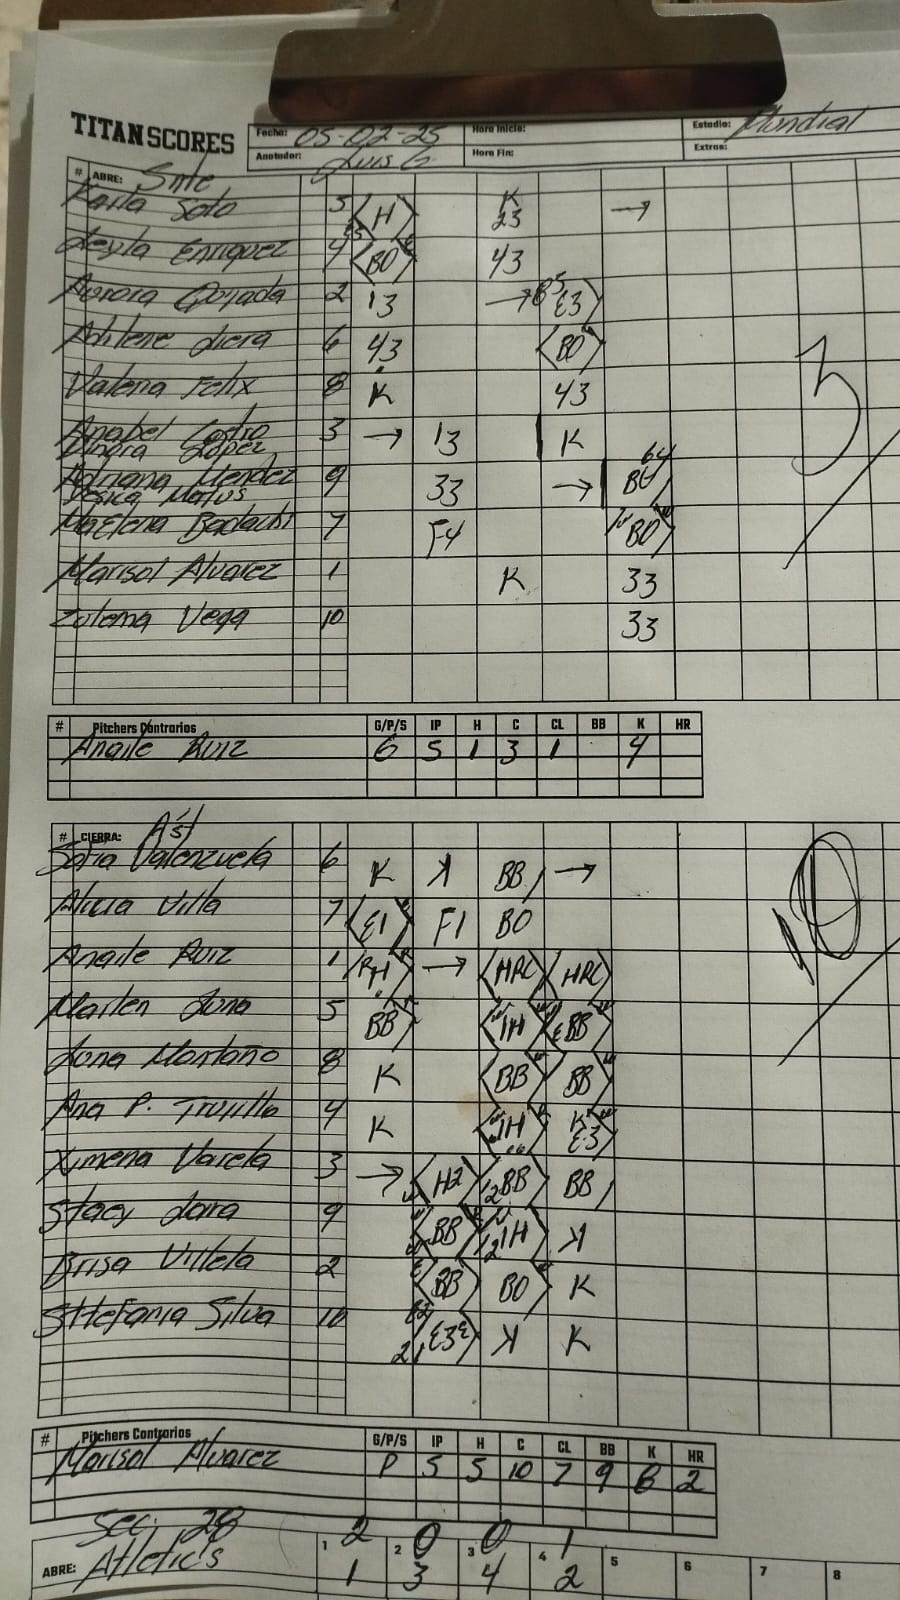 TITAN SCORES
Fecha: 05-02-25 Hora Inicio: Estadio: Mundial
Anotador: Luis G Hora Fin: Extras:
# ABRE: Snte
Karla Soto 5 H K 23 →
Leyla Enriquez 4 BO 43
Aurora Quijada 2 13 → E3
6 43 BO
Valeria Felix 8 K 43
Anabel Castro 3 → 13 K
Lopez
Adriana Mendez 9 33 → 64
Yesica
7 F4 BO
Marisol Alvarez 1 K 33
Zulema Vega 10 33
3
# Pitchers Contrarios G/P/S IP H C CL BB K HR
Anaile Ruiz G 5 1 3 1 4
# CIERRA: A's
Sofia Valenzuela 6 K K BB →
Alicia Villa 7 E1 F1 BO
Anaile Ruiz 1 → HRC HRC
Marlen Luna 5 BB 1H BB
Luna Montaño 8 K BB BB
Ana P. Trujillo 4 K 1H K E3
Ximena Varela 3 → H2 BB BB
Stacy Lara 9 BB 1H K
Brisa Villela 2 BB BO K
Sttefania Silva 10 E3 K K
10
# Pitchers Contrarios G/P/S IP H C CL BB K HR
Marisol Alvarez P 5 5 10 7 9 8 2
Sec. 28 2 0 0 1
ABRE: Atletic's 1 1 2 3 3 4 4 2 5 6 7 8